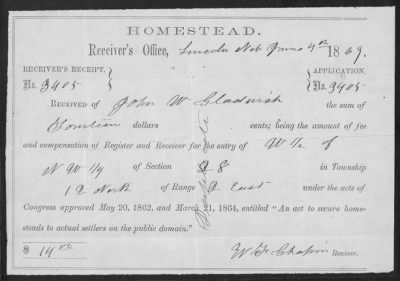 HOMESTEAD.
Receiver's Office, Lincoln Neb June 4th 1869.
RECEIVER'S RECEIPT, APPLICATION,
No. 3405 No. 3405
RECEIVED of John W Gladwish the sum of
Fourteen dollars cents; being the amount of fee
and compensation of Register and Receiver for the entry of W 1/2 of
N W 1/4 of Section 28 in Township
12 North of Range 2 East under the acts of
Congress approved May 20, 1862, and March 21, 1864, entitled "An act to secure home-
steads to actual settlers on the public domain."
$ 14 00
Receiver.
Duplicate